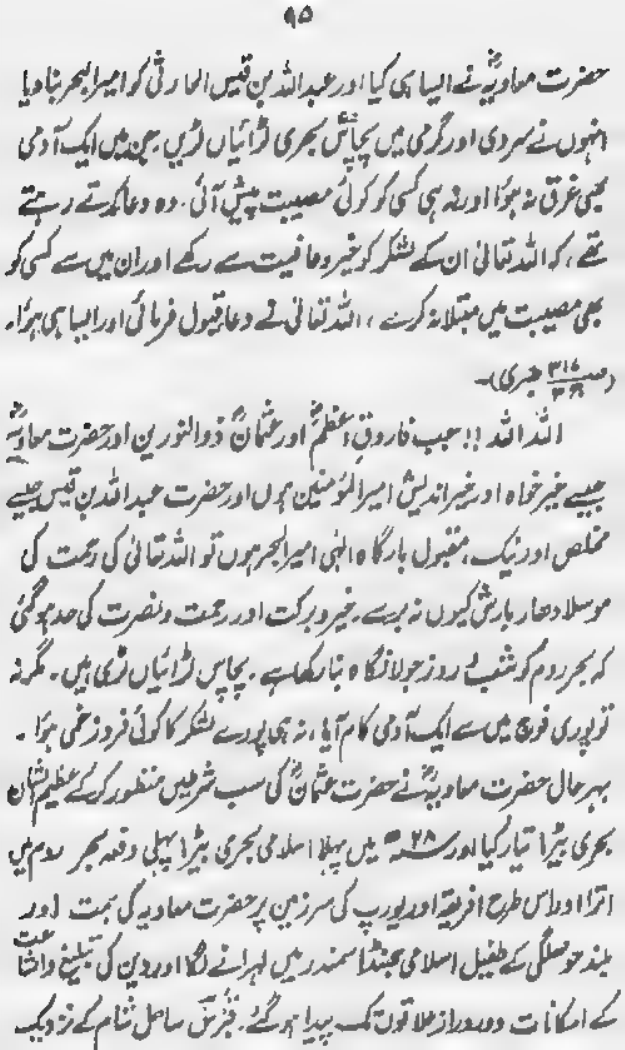 ۹۵
حضرت معاویہؓ نے ایسا ہی کیا اور عبداللہ بن قیس الحارثی کو امیر البحر بنا دیا
انہوں نے سردی اور گرمی میں پچاس بحری لڑائیاں لڑیں جن میں ایک آدمی
بھی غرق نہ ہوا اور نہ ہی کسی کو کوئی مصیبت پیش آئی۔ وہ دعا کرتے رہتے
تھے، کہ اللہ تعالیٰ ان کے لشکر کو خیر و عافیت سے رکھے اور ان میں سے کسی کو
بھی مصیبت میں مبتلا نہ کرے، اللہ تعالیٰ نے دعا قبول فرمائی اور ایسا ہی ہوا۔
(طبری)۔
اللہ اللہ!! جب فاروق اعظمؓ اور عثمانؓ ذوالنورین اور حضرت معاویہؓ
جیسے خیر خواہ اور خیر اندیش امیر المؤمنین ہوں اور حضرت عبداللہ بن قیس جیسے
مخلص اور نیک، مقبول بارگاہ الٰہی امیر البحر ہوں تو اللہ تعالیٰ کی رحمت کی
موسلا دھار بارش کیوں نہ برسے۔ خیر و برکت اور رحمت و نصرت کی حد ہو گئی
کہ بحر روم کو شب و روز جولانگاہ بنا رکھا ہے۔ پچاس لڑائیاں لڑی ہیں۔ مگر نہ
تو پوری فوج میں سے ایک آدمی کام آیا، نہ ہی پورے لشکر کا کوئی فرد زخمی ہوا۔
بہر حال حضرت معاویہؓ نے حضرت عثمانؓ کی سب شرطیں منظور کر کے عظیم الشان
بحری بیڑا تیار کیا اور ۲۸ھ میں پہلا اسلامی بحری بیڑا پہلی دفعہ بحر روم میں
اترا اور اس طرح افریقہ اور یورپ کی سرزمین پر حضرت معاویہ کی ہمت اور
بلند حوصلگی کے طفیل اسلامی جھنڈا سمندر میں لہرانے لگا اور دین کی تبلیغ و اشاعت
کے امکانات دور دراز علاقوں تک پیدا ہو گئے۔ قبرس ساحل شام کے نزدیک